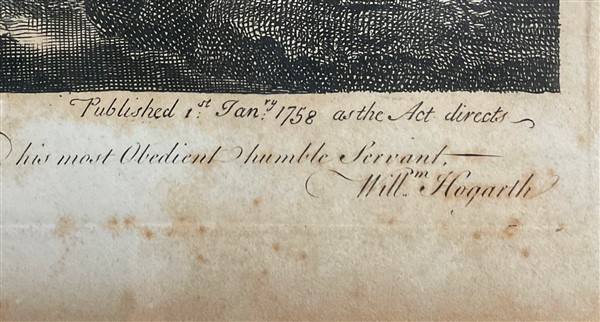 Published 1.st Jan.ry 1758 as the Act directs
his most Obedient humble Servant,
Will.m Hogarth